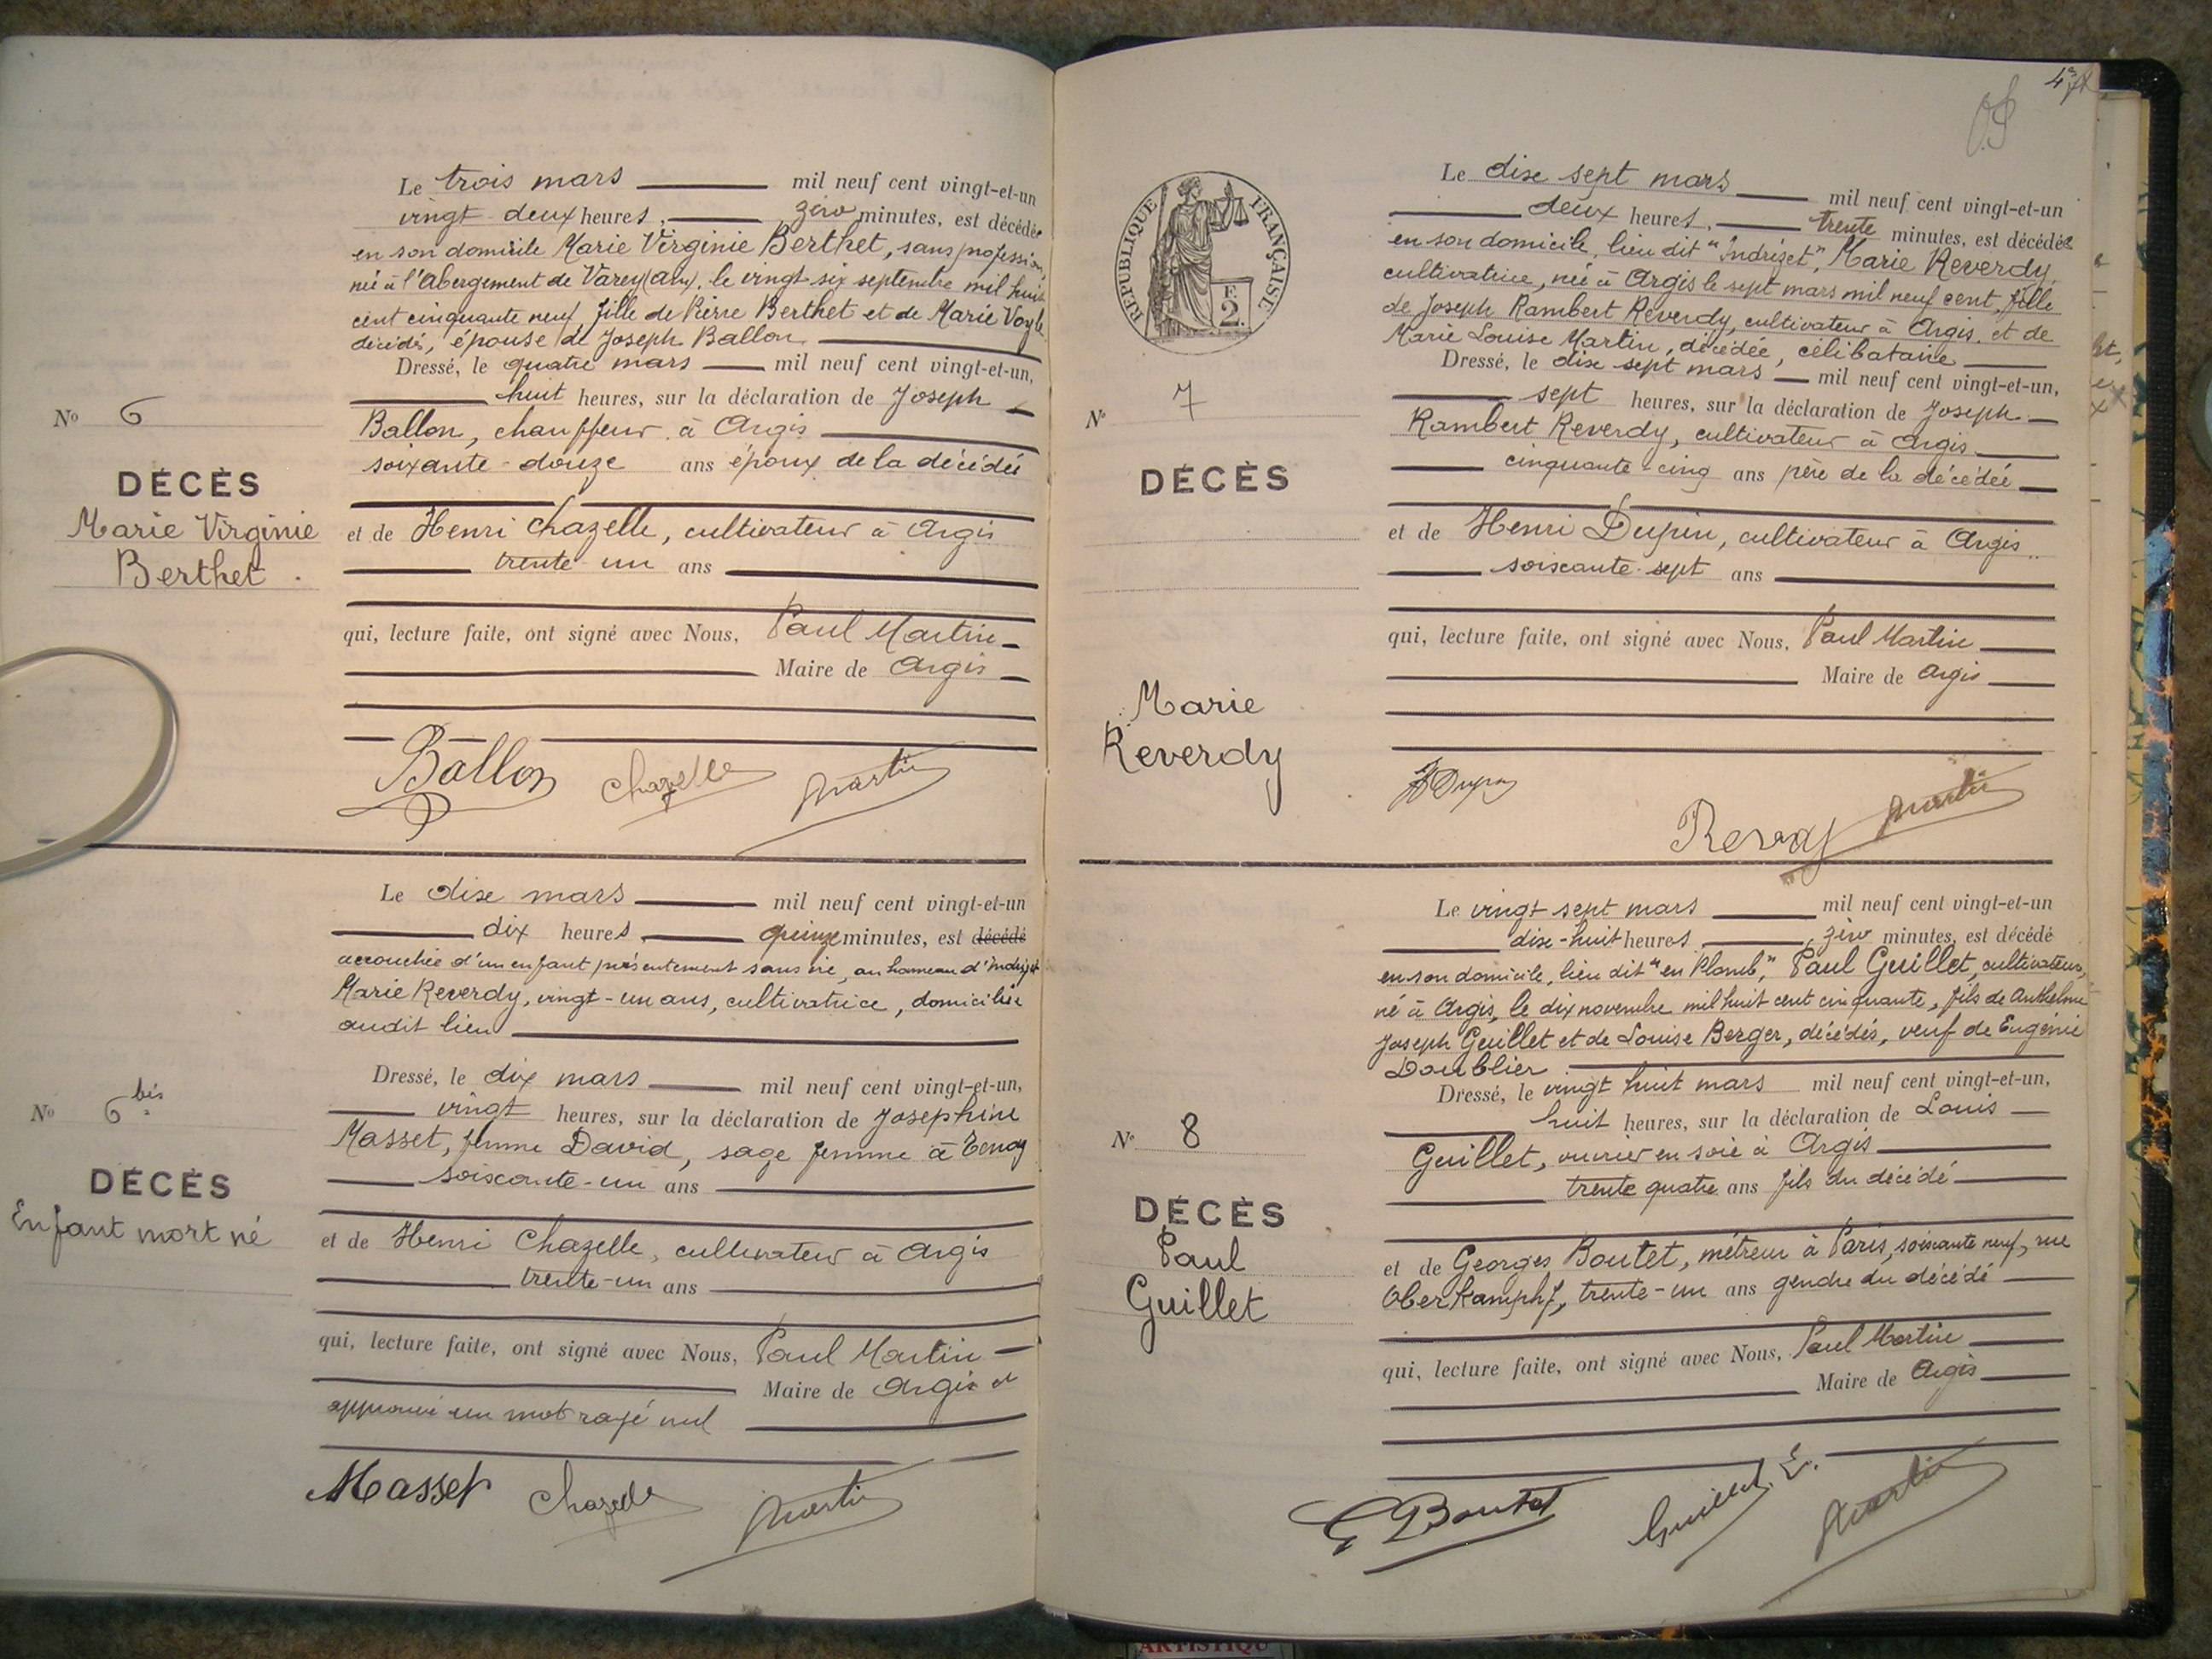 Le trois mars mil neuf cent vingt-et-un
vingt deux heures, zéro minutes, est décédée
en son domicile Marie Virginie Berthet, sans profession,
née à l'Abergement de Varey (Ain), le vingt six septembre mil huit
cent cinquante neuf, fille de Pierre Berthet et de Marie
décédés, épouse de Joseph Ballon
Dressé, le quatre mars mil neuf cent vingt-et-un,
huit heures, sur la déclaration de Joseph
Ballon, chauffeur à Argis
soixante-douze ans époux de la décédée
No 6
DÉCÈS
Marie Virginie
Berthet.
et de Henri Chazelle, cultivateur à Argis
trente un ans
qui, lecture faite, ont signé avec Nous, Paul Martin
Maire de Argis
Ballon Chazelle Martin
Le dixe mars mil neuf cent vingt-et-un
dix heures, quinze minutes, est décédé
accouchée d'un enfant présentement sans vie, au hameau d'Indrizet
Marie Reverdy, vingt-un ans, cultivatrice, domiciliée
audit lieu
Dressé, le dix mars mil neuf cent vingt-et-un,
vingt heures, sur la déclaration de Joséphine
Masset, femme David, sage femme à Tenay
soixante-un ans
No 6 bis
DÉCÈS
Enfant mort né
et de Henri Chazelle, cultivateur à Argis
trente-un ans
qui, lecture faite, ont signé avec Nous, Paul Martin
Maire de Argis et
approuvé un mot rayé nul
Masset Chazelle Martin
RÉPUBLIQUE FRANÇAISE
F.
2.
Le dixe sept mars mil neuf cent vingt-et-un
deux heures, trente minutes, est décédée
en son domicile, lieu dit "Indrizet", Marie Reverdy,
cultivatrice, née à Argis le sept mars mil neuf cent, fille
de Joseph Rambert Reverdy, cultivateur à Argis, et de
Marie Louise Martin, décédée, célibataire
Dressé, le dixe sept mars mil neuf cent vingt-et-un,
sept heures, sur la déclaration de Joseph
Rambert Reverdy, cultivateur à Argis
cinquante-cinq ans père de la décédée
No 7
DÉCÈS
Marie
Reverdy
et de Henri Dupin, cultivateur à Argis
soixante-sept ans
qui, lecture faite, ont signé avec Nous, Paul Martin
Maire de Argis
H Dupin
Martin
Le vingt sept mars mil neuf cent vingt-et-un
dixe-huit heures, zéro minutes, est décédé
en son domicile, lieu dit "en Plomb", Paul Guillet, cultivateur,
né à Argis, le dix novembre mil huit cent cinquante, fils de Anthelme
Joseph Guillet et de Louise Berger, décédés, veuf de Eugénie
Doublier
Dressé, le vingt huit mars mil neuf cent vingt-et-un,
huit heures, sur la déclaration de Louis
Guillet, ouvrier en soie à Argis
trente quatre ans fils du décédé
No 8
DÉCÈS
Paul
Guillet
et de Georges Boutet, métreur à Paris, soixante neuf, rue
Oberkampf, trente-un ans gendre du décédé
qui, lecture faite, ont signé avec Nous, Paul Martin
Maire de Argis
G Boutet Guillet Martin
ARTISTIQU